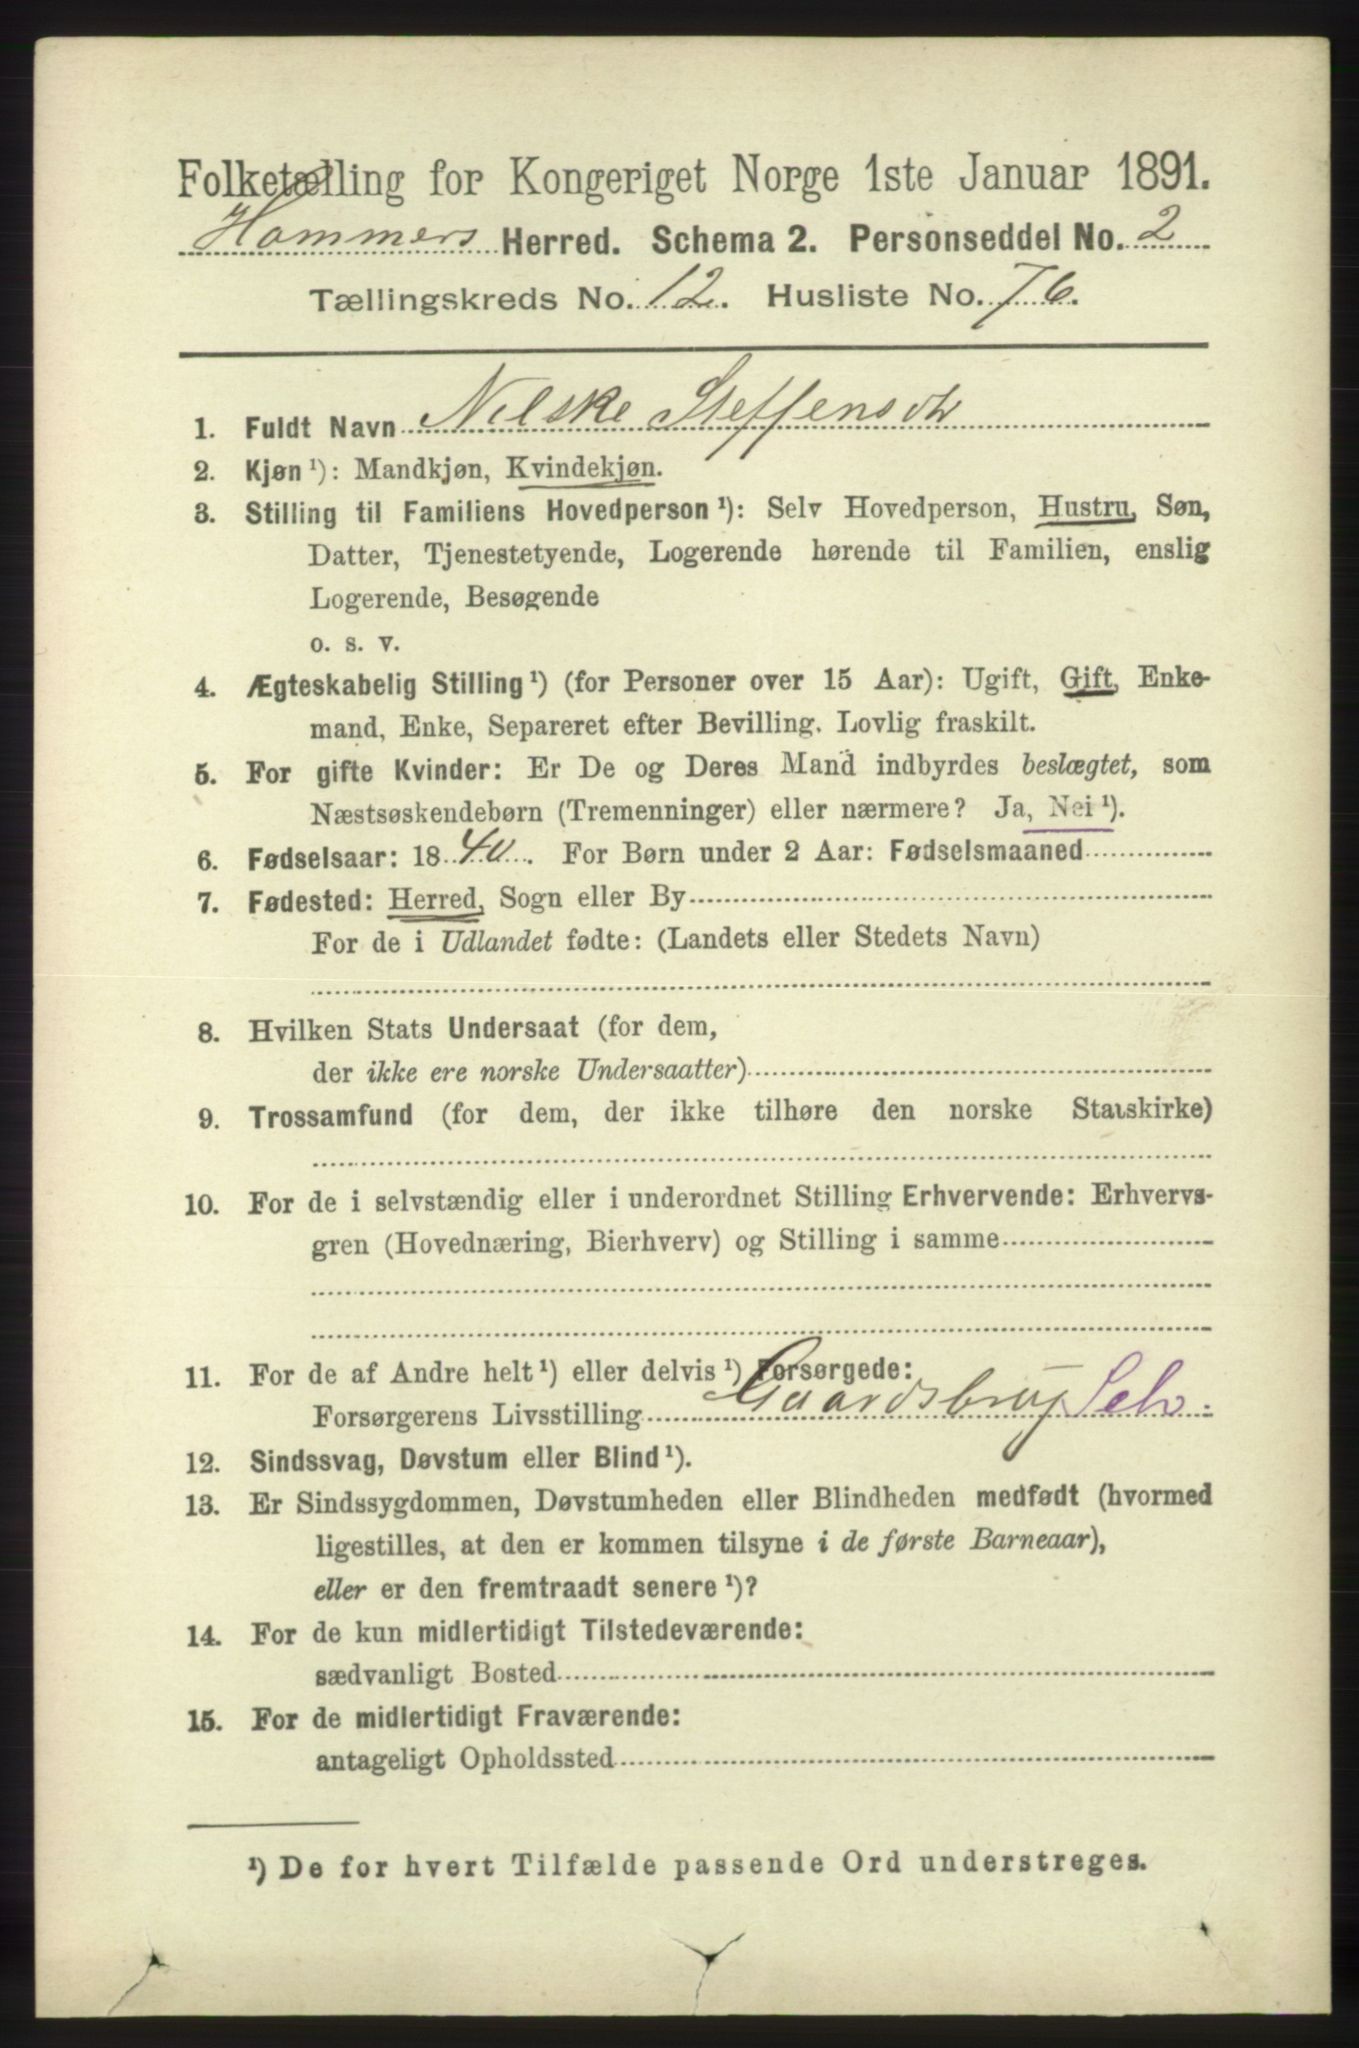 Folketælling for Kongeriget Norge 1ste Januar 1891.
Hammers Herred. Schema 2. Personseddel No. 2
Tællingskreds No. 12. Husliste No. 76.
1. Fuldt Navn Nilske Steffensdtr
2. Kjøn ¹): Mandkjøn, Kvindekjøn.
3. Stilling til Familiens Hovedperson ¹): Selv Hovedperson, Hustru, Søn,
Datter, Tjenestetyende, Logerende hørende til Familien, enslig
Logerende, Besøgende
o. s. v.
4. Ægteskabelig Stilling ¹) (for Personer over 15 Aar): Ugift, Gift, Enke-
mand, Enke, Separeret efter Bevilling. Lovlig fraskilt.
5. For gifte Kvinder: Er De og Deres Mand indbyrdes beslægtet, som
Næstsøskendebørn (Tremenninger) eller nærmere? Ja, Nei ¹).
6. Fødselsaar: 1840. For Børn under 2 Aar: Fødselsmaaned
7. Fødested: Herred, Sogn eller By
For de i Udlandet fødte: (Landets eller Stedets Navn)
8. Hvilken Stats Undersaat (for dem,
der ikke ere norske Undersaatter)
9. Trossamfund (for dem, der ikke tilhøre den norske Statskirke)
10. For de i selvstændig eller i underordnet Stilling Erhvervende: Erhvervs-
gren (Hovednæring, Bierhverv) og Stilling i samme
11. For de af Andre helt ¹) eller delvis ¹) Forsørgede:
Forsørgerens Livsstilling Gaardsbrug Selv.
12. Sindssvag, Døvstum eller Blind ¹).
13. Er Sindssygdommen, Døvstumheden eller Blindheden medfødt (hvormed
ligestilles, at den er kommen tilsyne i de første Barneaar),
eller er den fremtraadt senere ¹)?
14. For de kun midlertidigt Tilstedeværende:
sædvanligt Bosted
15. For de midlertidigt Fraværende:
antageligt Opholdssted
¹) De for hvert Tilfælde passende Ord understreges.